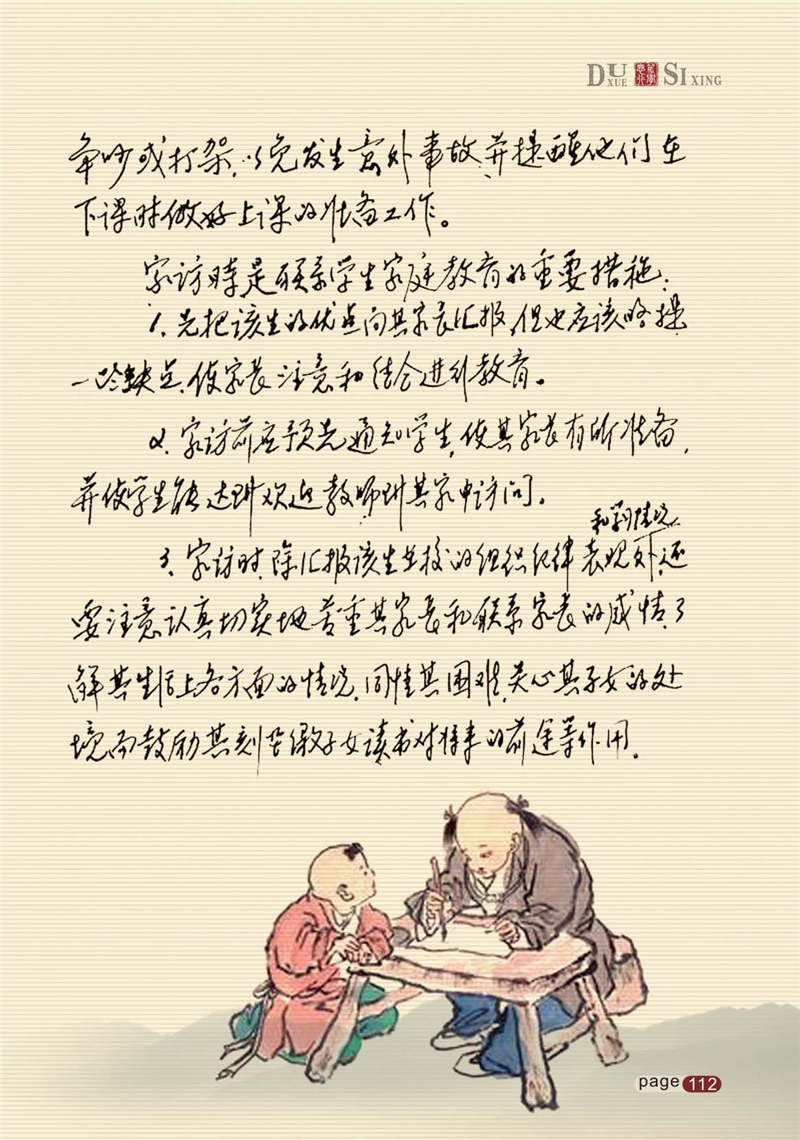 DUXUE SIXING
争吵或打架,以免发生意外事故并提醒他们在
下课时做好上课的准备工作。
家访时是联系学生家庭教育的重要措施:
1、先把该生的优点向其家长汇报,但也应该略提
一些缺点,使家长注意和结合进行教育。
2、家访前应预先通知学生,使其家长有所准备,
并使学生能达到欢迎教师到其家中访问。
和学习情况
3、家访时,除汇报该生在校的组织纪律表现外,还
要注意认真切实地着重其家长和联系家长的感情,了
解其生活上各方面的情况,同情其困难,关心其子女的处
境而鼓励其刻苦缴子女读书对将来的前途等作用。
page 112